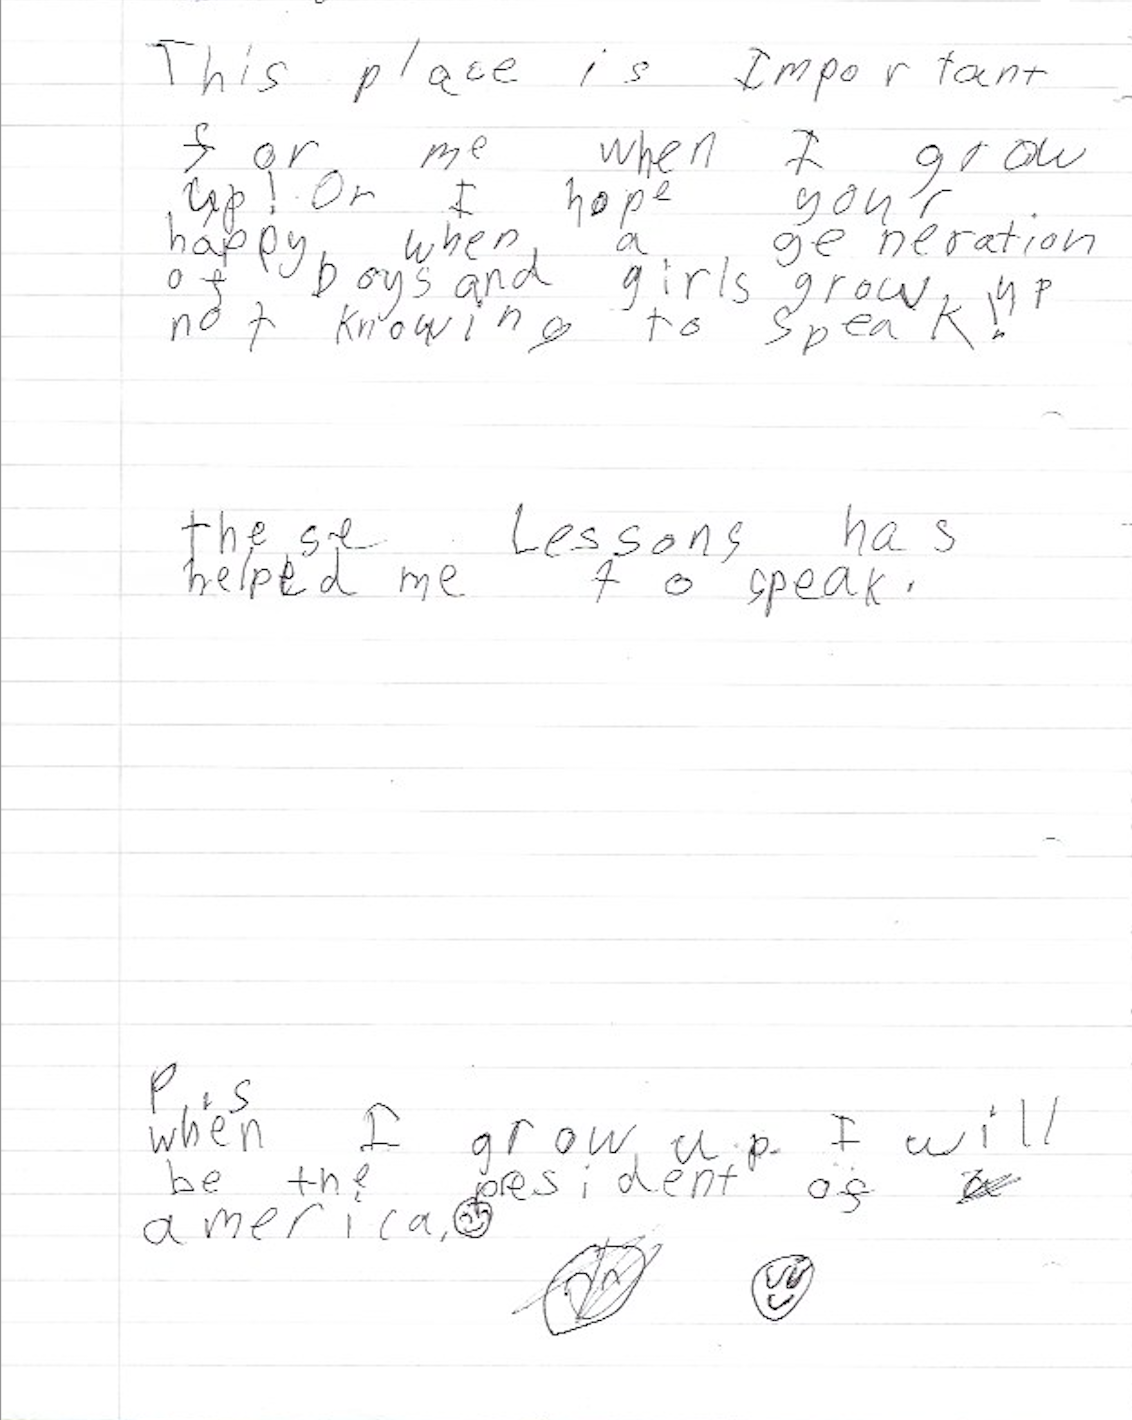 This place is Important
for me when I grow
up! Or I hope your
happy when a generation
of boys and girls grow up
not knowing to speak!
these Lessons has
helped me to speak.
P.S
when I grow up I will
be the president of
america.